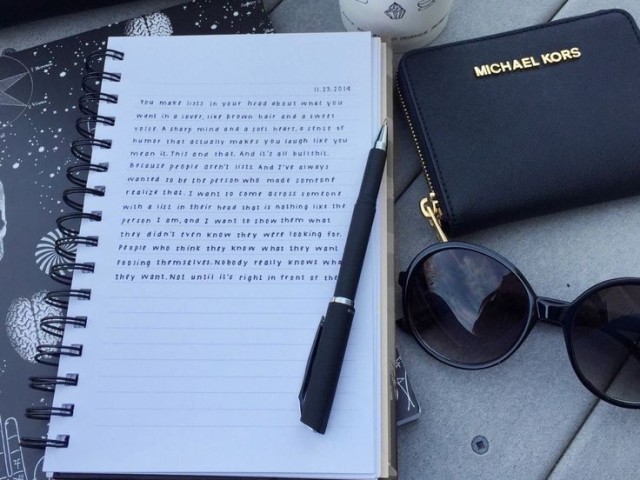 11.23.2014
You make lists in your head about what you
want in a lover, like brown hair and a sweet
voice. A sharp mind and a soft heart, a sense of
humor that actually makes you laugh like you
mean it. This end that. And it's all bullshit.
Because people aren't lists. And I've always
wanted to be the person who made someone
realize that. I want to come across someone
with a list in their head that is nothing like the
person I am, and I want to show them what
they didn't even know they were looking for.
People who think they know what they want
Fooling themselves. Nobody really knows wha
they want. Not until it's right in front of the
MICHAEL KORS